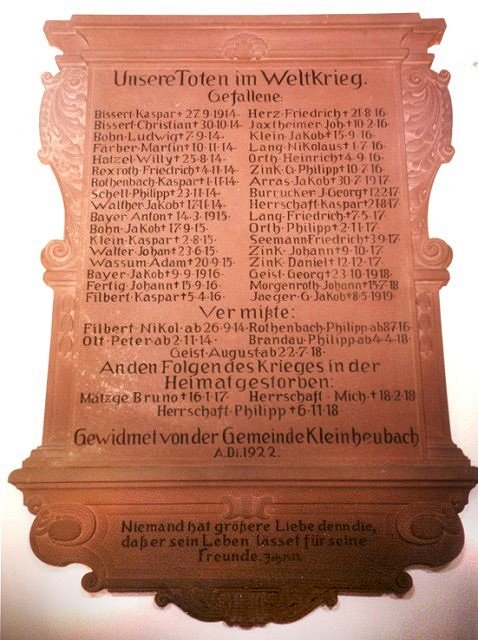 Unsere Toten im Weltkrieg.
Gefallene:
Bissert·Kaspar † 27·9·1914· Herz·Friedrich † 21·8·16·
Bissert·Christian † 30·10·14· Jaxtheimer Joh † 10·2·16·
Bohn·Ludwig † 7·9·14· Klein·Jakob † 15·9·16·
Färber·Martin † 10·11·14· Lang·Nikolaus † 1·7·16·
Hatzel·Willy † 25·8·14· Orth·Heinrich † 4·9·16·
Rexroth·Friedrich † 4·11·14· Zink·G·Philipp † 10·7·16·
Rothenbach·Kaspar † 1·11·14· Arras·Jakob † 30·7·1917·
Schell·Philipp † 23·11·14· Burrucker·J·Georg † 1·2·2·17
Walther·Jakob † 17·11·14· Herrschaft·Kaspar † 21·8·17·
Bayer·Anton † 14·3·1915· Lang·Friedrich † 7·5·17·
Bohn·Jakob † 17·9·15· Orth·Philipp † 2·11·17·
Klein·Kaspar † 2·8·15· Seemann·Friedrich † 3·9·17·
Walter·Johan † 23·6·15· Zink·Johann † 9·10·17·
Wassum·Adam † 20·9·15· Zink·Daniel † 12·12·17·
Bayer·Jakob † 9·9·1916· Geist·Georg † 23·10·1918·
Fertig·Johann † 15·9·16· Morgenroth·Johann † 15·7·18
Filbert·Kaspar † 5·4·16· Jaeger·G·Jakob † 8·5·1919·
Vermißte:
Filbert·Nikol·ab 26·9·14· Rothenbach·Philipp·ab 8·7·16·
Olt·Peter ab 2·11·14· Brandau·Philipp ab 4·4·18·
Geist·August·ab 22·7·18·
An den Folgen des Krieges in der
Heimat gestorben:
Matzge Bruno † 16·1·17· Herrschaft·Mich † 18·2·18
Herrschaft·Philipp † 6·11·18
Gewidmet von der Gemeinde Kleinheubach
A.Di.1922.
Niemand hat größere Liebe denn die,
daß er sein Leben lässet für seine
Freunde.